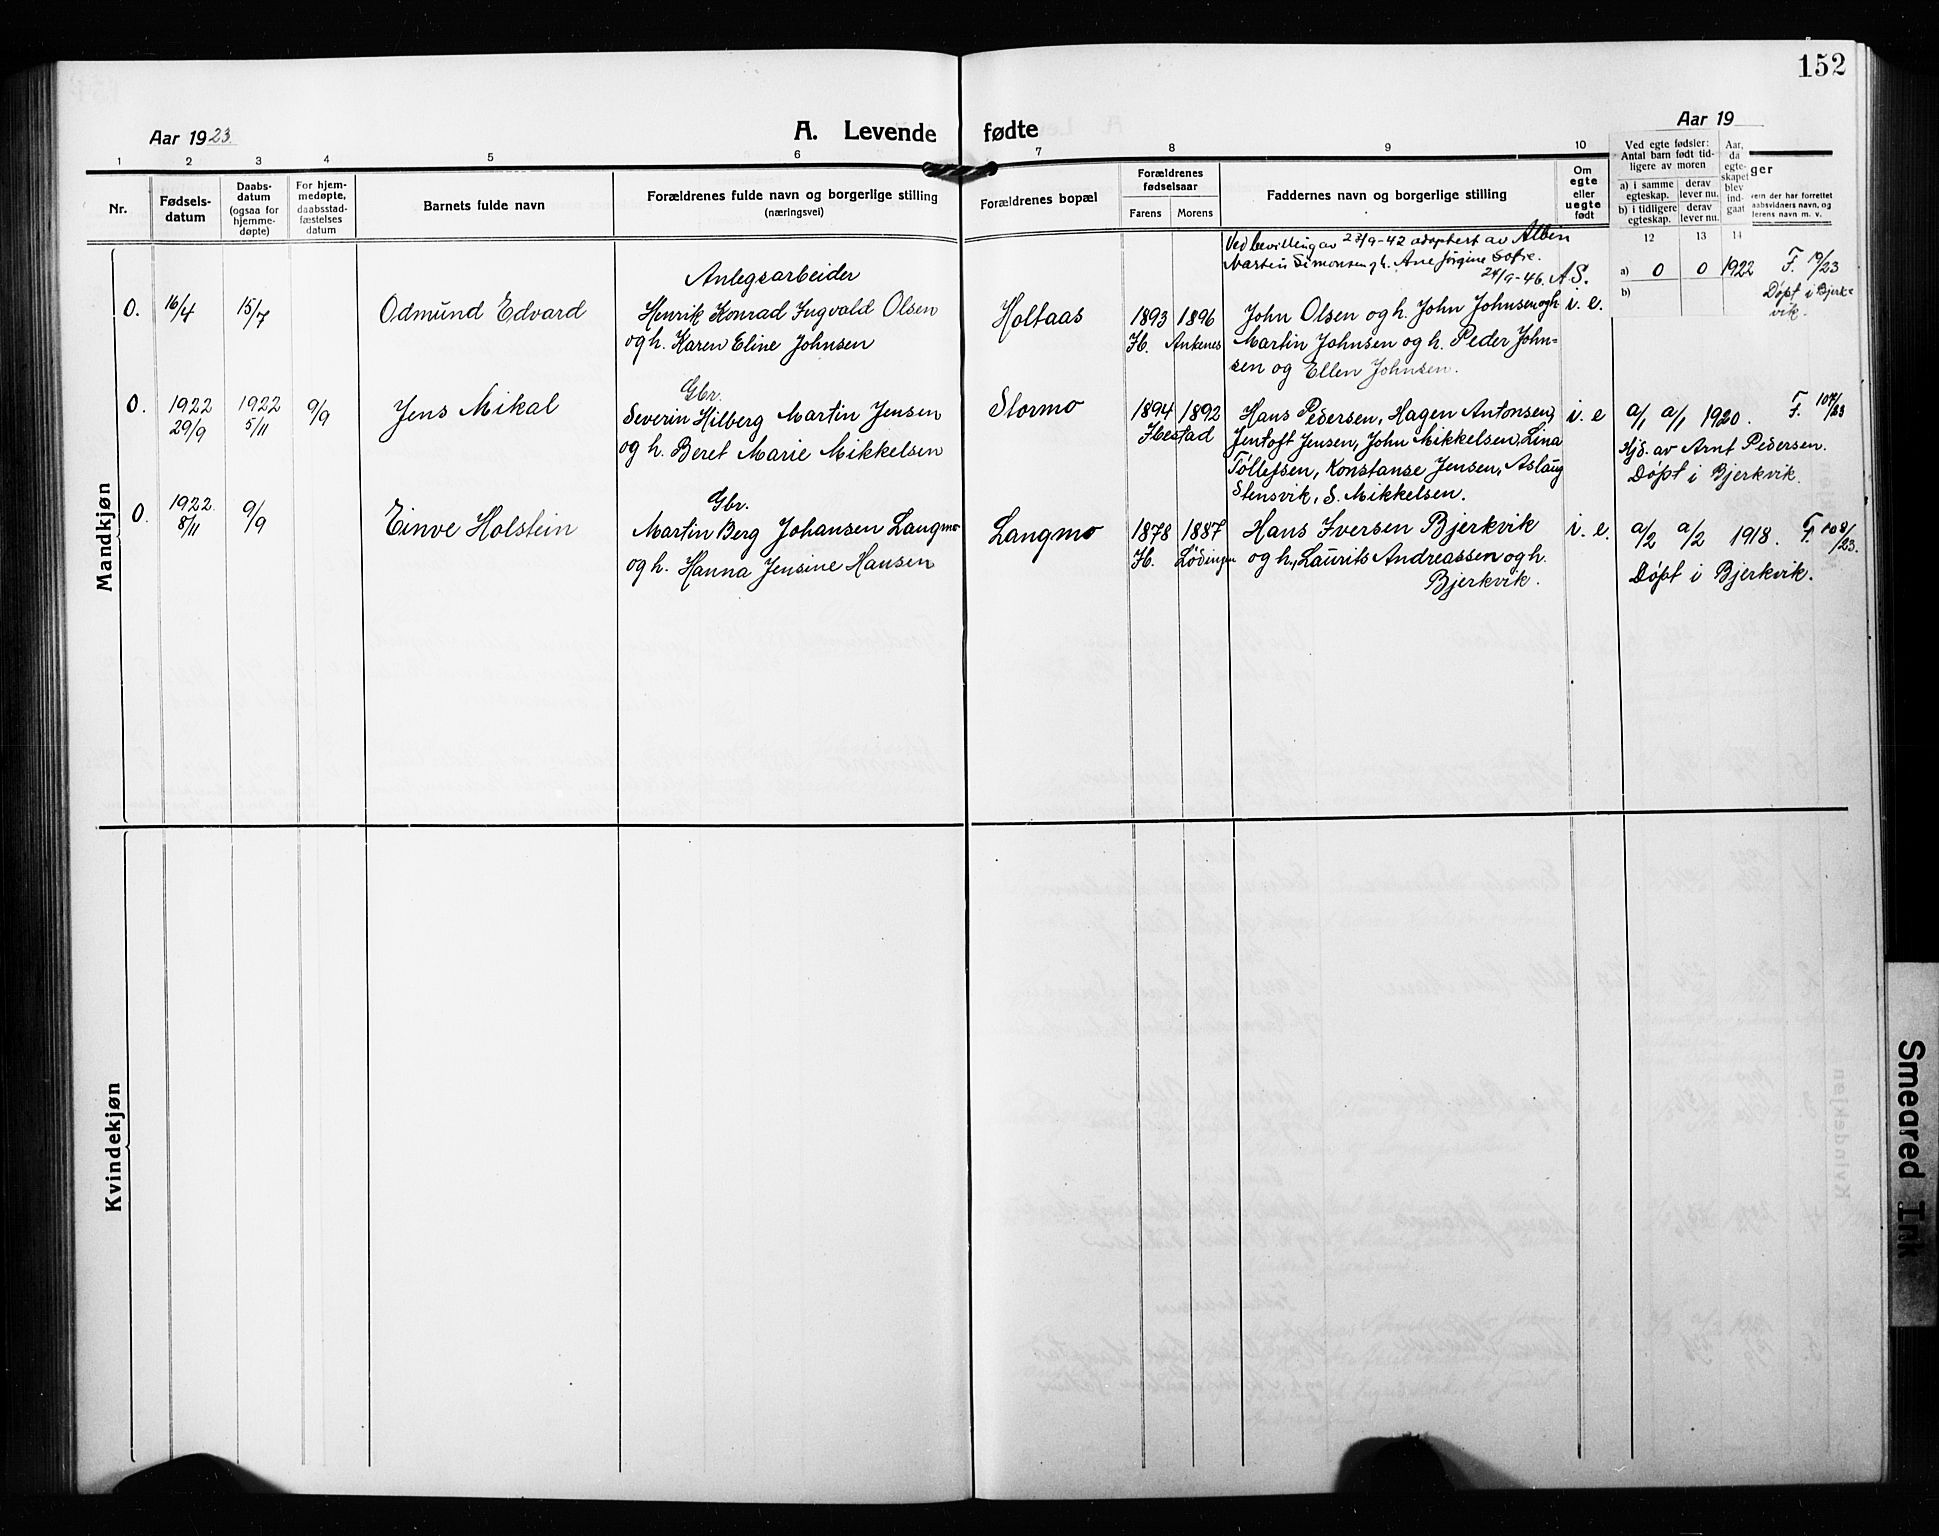 152
Aar 1923.
A. Levende fødte
Aar 19
1 2 3 4 5 6 7 8 9 10
Nr.
Fødsels-
datum
Daabs-
datum
(ogsaa for
hjemme-
døpte)
For hjem-
medøpte,
daabsstad-
fæstelses
datum
Barnets fulde navn
Forældrenes fulde navn og borgerlige stilling
(næringsvei)
Forældrenes bopæl
Forældrenes
fødselsaar
Farens Morens
Faddernes navn og borgerlige stilling
Om
egte
eller
uegte
født
Ved egte fødsler:
Antal barn født tid-
ligere av moren
a) i samme
egteskap.
derav
lever nu.
b) i tidligere
egteskap.
derav
lever nu.
Aar,
da
egte-
skapet
blev
ind-
gaat
12 13 14
ger
ern der har forrettet
aabsvidners navn, og
lerens navn m. v.
Mandkjøn
Ved bevilling av 23/9-42 adoptert av Albin
Martin Simonsen og h. Ane Jørgine Sofie.
24/9-46. A.S.
Anlegsarbeider
0. 16/4 15/7 Odmund Edvard Henrik Konrad Ingvald Olsen Holtaas 1893 1896 John Olsen og h. John Johnsen og h. i. e. a) 0 0 1922 F. 19/23
b) Døpt i Bjerk-
vik.
og h. Karen Eline Johnsen H. Ankenes Martin Johnsen og h. Peder John-
sen og Ellen Johnsen.
Gbr.
0. 1922 1922 9/9 Jens Mikal Severin Hilberg Martin Jensen Stormo 1894 1892 Hans Pedersen, Hagen Antonsen, i. e a/1 a/1 1920. F. 107/23
29/9 5/11 og h. Beret Marie Mikkelsen Ibestad Jentoft Jensen, John Mikkelsen, Lina Hjd. av Arnt Pedersen.
Tollefsen, Konstanse Jensen, Aslaug Døpt i Bjerkvik.
Stensvik, S. Mikkelsen.
Gbr.
0. 1922. 9/9 Einve Holstein Martin Berg Johansen Langmo Langmo 1878 1887 Hans Iversen Bjerkvik i. e. a/2 a/2 1918. F. 108/23.
8/11 og h. Hanna Jensine Hansen H. Lödingen og h., Laurits Andreassen og h. Døpt i Bjerkvik.
Bjerkvik.
Kvindekjøn
Smeared Ink